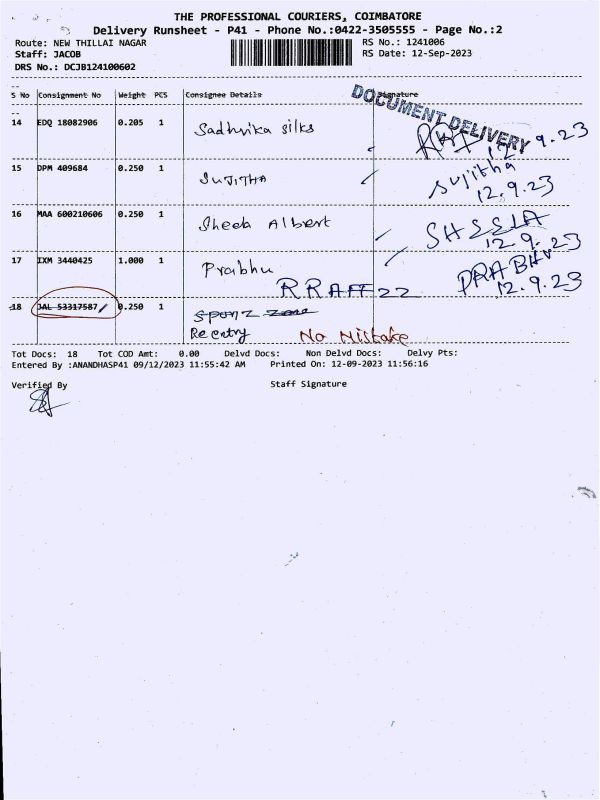 THE PROFESSIONAL COURIERS, COIMBATORE
Delivery Runsheet - P41 - Phone No.:0422-3505555 - Page No.:2
Route: NEW THILLAI NAGAR RS No.: 1241006
Staff: JACOB RS Date: 12-Sep-2023
DRS No.: DCJB124100602
S No Consignment No Weight PCS Consignee Details Signature
DOCUMENT DELIVERY
14 EDQ 18082906 0.205 1 Sadhvika silks
12.9.23
15 DPM 409684 0.250 1 SUJITHA Sujitha
12.9.23
16 MAA 600210606 0.250 1 Sheeb Albert SHEELA
12.9.23
17 IXM 3440425 1.000 1 Prabhu PRABHU
12.9.23
18 JAL 53317587 0.250 1
Re entry No Mistake
Tot Docs: 18 Tot COD Amt: 0.00 Delvd Docs: Non Delvd Docs: Delvy Pts:
Entered By :ANANDHASP41 09/12/2023 11:55:42 AM Printed On: 12-09-2023 11:56:16
Verified By Staff Signature